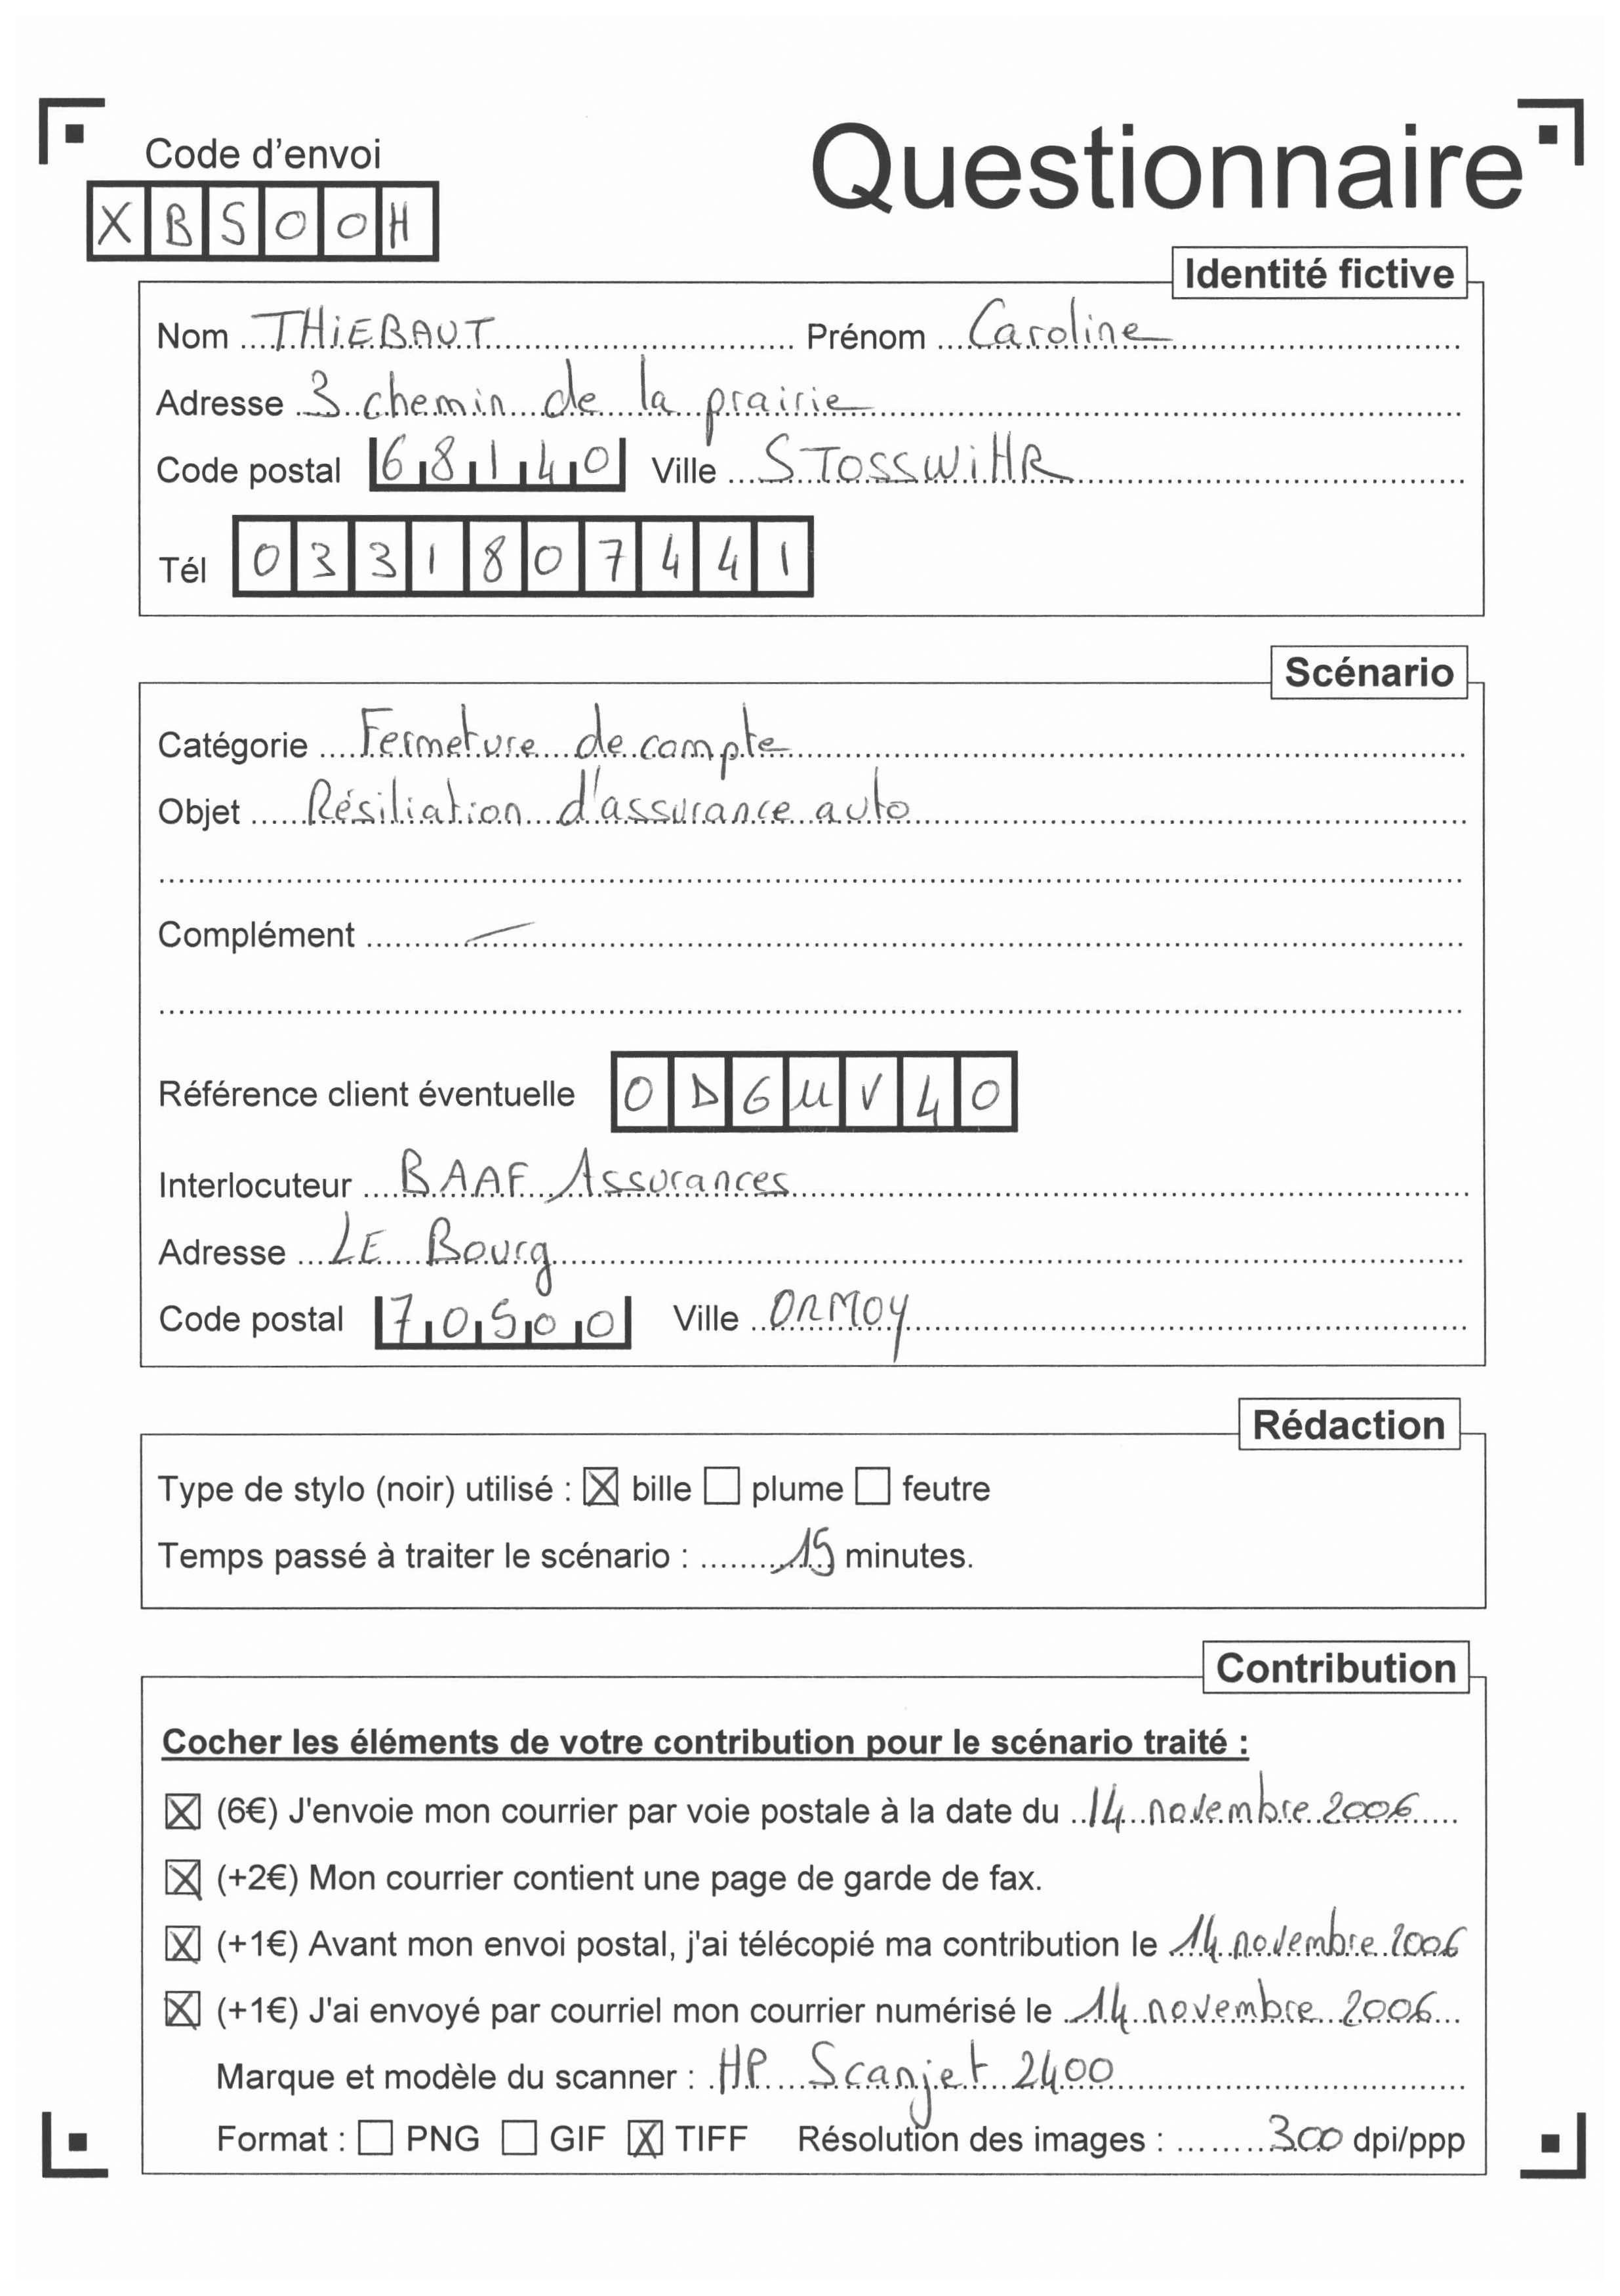 Questionnaire
Code d'envoi
XBS00H
Identité fictive
Nom THiEBAUT Prénom Caroline
Adresse 3 chemin de la prairie
Code postal 68140 Ville STOSSWiHR
Tél 0331807441
Scénario
Catégorie Fermeture de compte
Objet Résiliation d'assurance auto
Complément —
Référence client éventuelle OD6UV40
Interlocuteur BAAF Assurances
Adresse LE Bourg
Code postal 70500 Ville ORMOY
Rédaction
Type de stylo (noir) utilisé : ☒ bille ☐ plume ☐ feutre
Temps passé à traiter le scénario : 15 minutes.
Contribution
Cocher les éléments de votre contribution pour le scénario traité :
☒ (6€) J'envoie mon courrier par voie postale à la date du 14 novembre 2006
☒ (+2€) Mon courrier contient une page de garde de fax.
☒ (+1€) Avant mon envoi postal, j'ai télécopié ma contribution le 14 novembre 2006
☒ (+1€) J'ai envoyé par courriel mon courrier numérisé le 14 novembre 2006
Marque et modèle du scanner : HP Scanjet 2400
Format : ☐ PNG ☐ GIF ☒ TIFF Résolution des images : 300 dpi/ppp